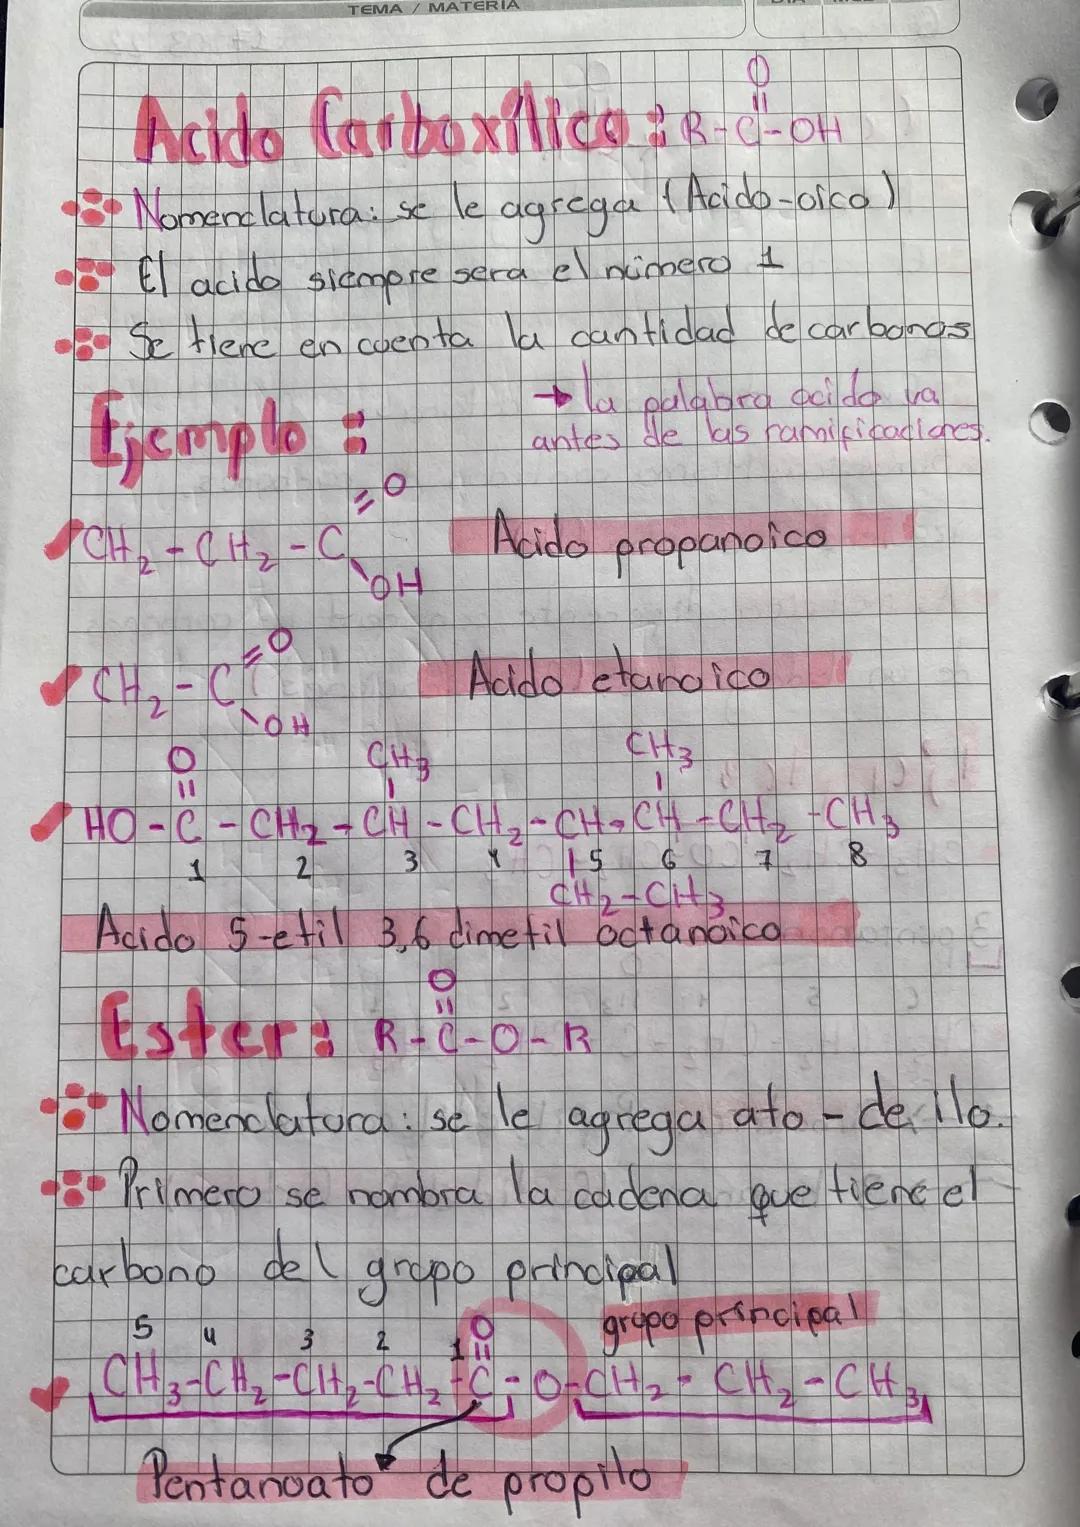 TEMA / MATERIA
O
||
Acido Carboxílico: R-C-OH
Nomenclatura: se le agrega (Acido-oico)
El acido siempre sera el número 1
Se tiene en cuenta la cantidad de carbonos
→ la palabra acido va
antes de las ramificaciones.
Ejemplo:
=O
CH2-CH2-C
\OH
Acido propanoico
=O
CH2-C
\OH
Acido etanoico
O CH3 CH3
|| | |
HO-C-CH2-CH-CH2-CH-CH-CH2-CH3
1 2 3 4 | 5 6 7 8
CH2-CH3
Acido 5-etil 3,6 dimetil octanoico
O
||
Ester: R-C-O-R
Nomenclatura: se le agrega ato-de ilo.
Primero se nombra la cadena que tiene el
carbono del grupo principal
grupo principal
5 4 3 2 1 O
||
CH3-CH2-CH2-CH2-C-O-CH2-CH2-CH3
Pentanoato de propilo